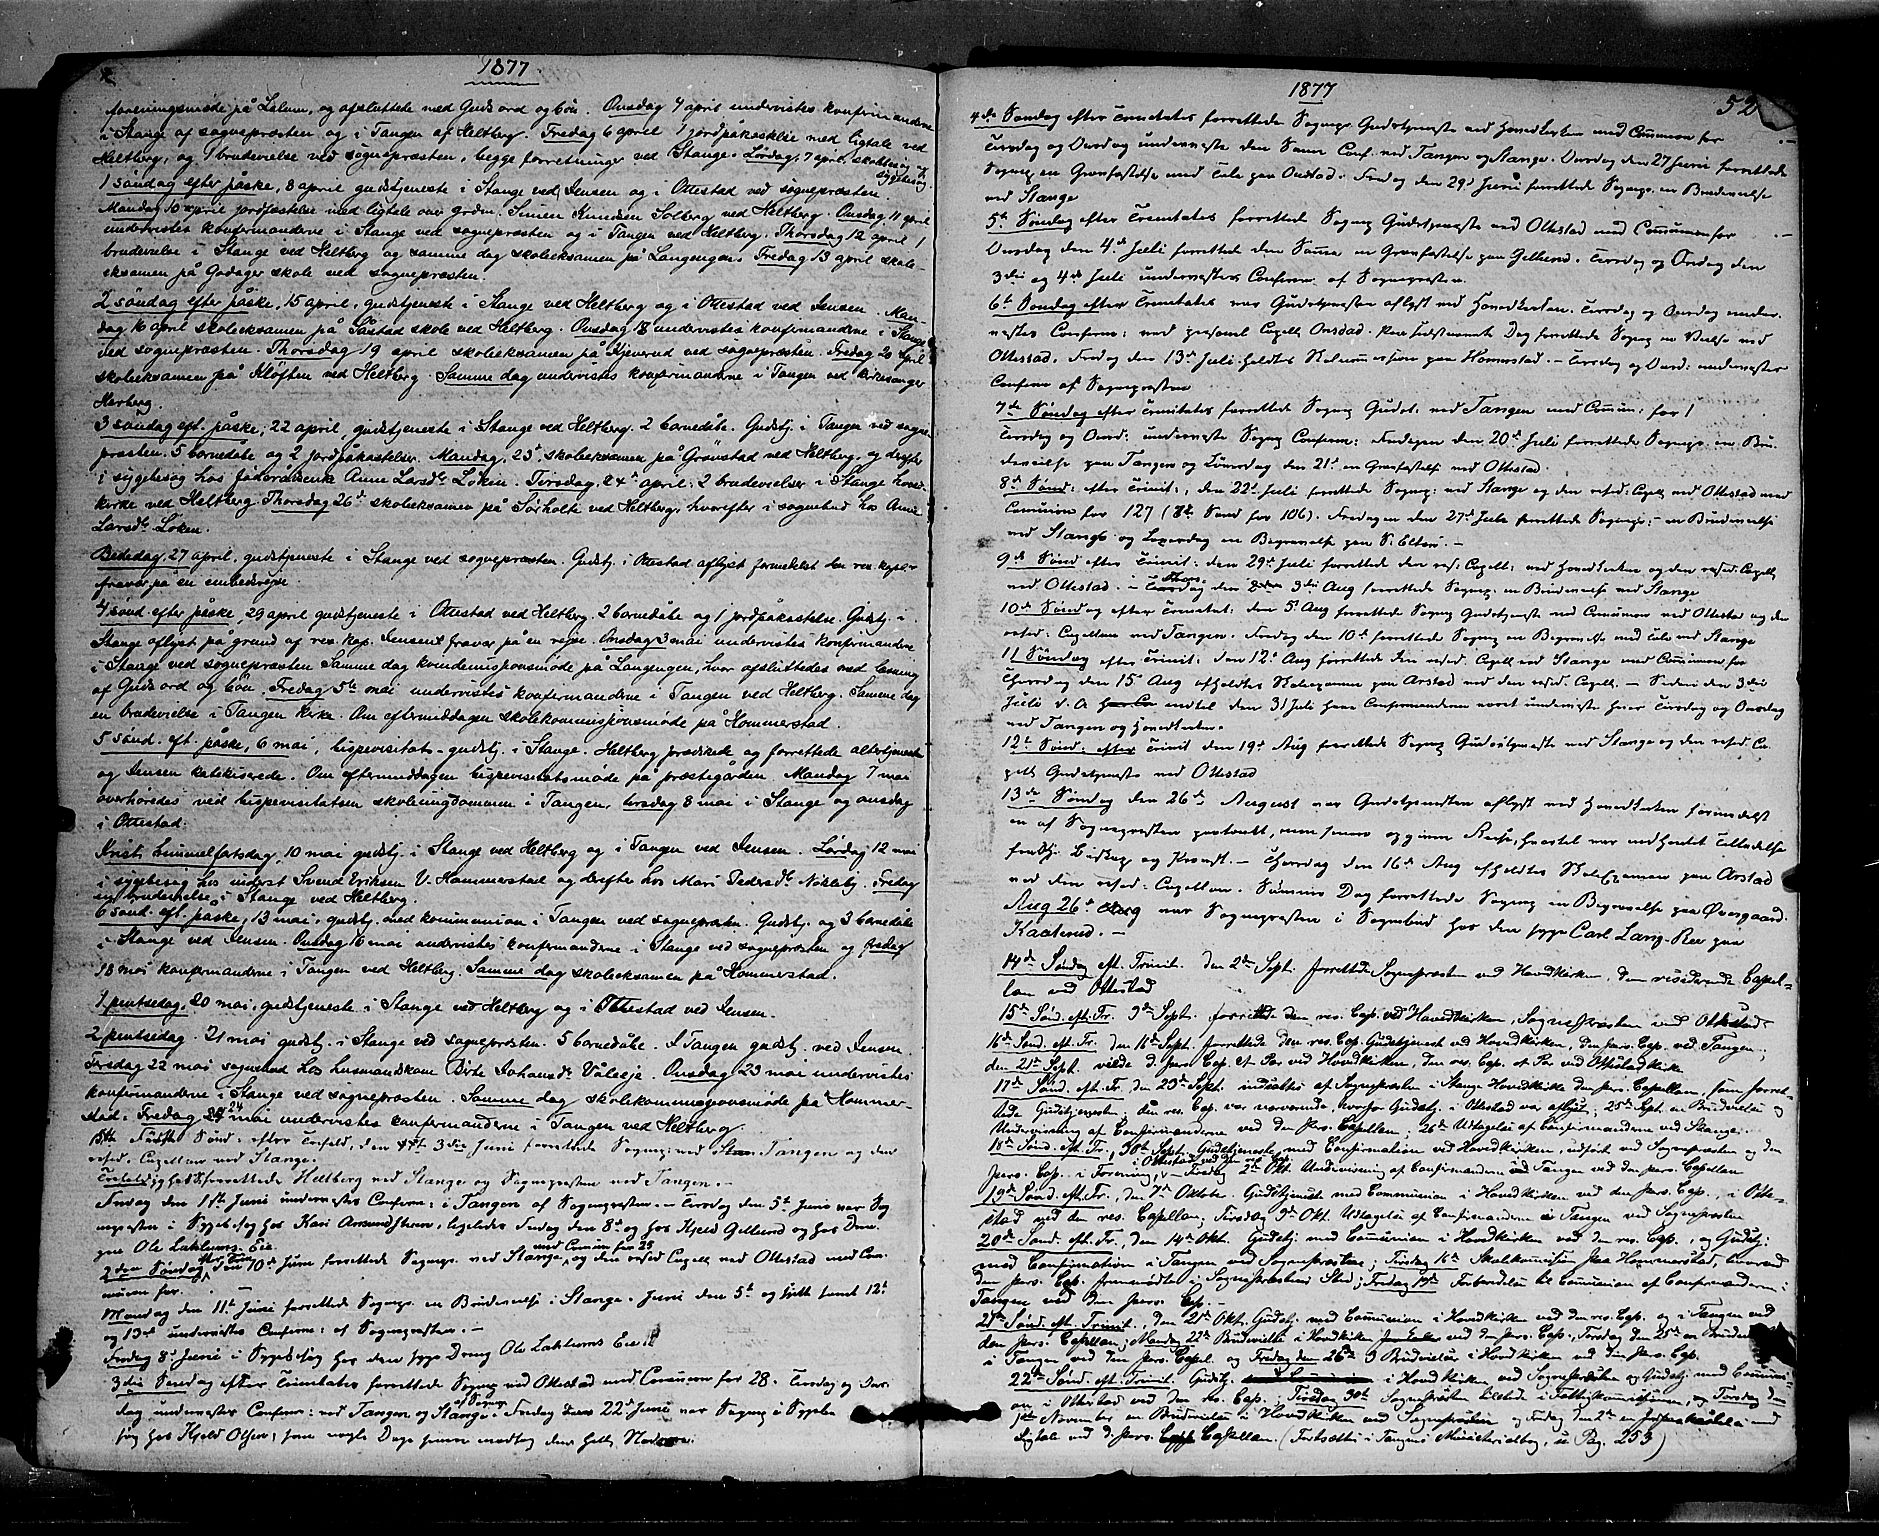 1877
foreningsmøde på Lalum, og afsluttede med Guds ord og bön. Onsdag 4 april undervistes konfirmanderne
i Stange af sognepræsten og i Tangen af Heltberg. Fredag 6 april 1 jordpåkastelse med ligtale ved
Heltberg, og 1 brudevielse ved sognepræsten, begge forretninger ved Stange. Lørdag 7 april skolebesøg og
sygebesøg.
1 söndag efter påske, 8 april gudstjeneste i Stange ved Jensen og i Ottestad ved sognepræsten.
Mandag 10 april jordfæstelse med ligtale over Simen Knudsen Solberg ved Heltberg. Onsdag 11 april
undervistes konfirmanderne i Stange ved sognepræsten og i Tangen ved Heltberg. Thorsdag 12 april 1
brudevielse i Stange ved Heltberg og samme dag skoleeksamen på Langengen. Fredag 13 april skole-
eksamen på Godager skole ved sognepræsten.
2 söndag efter påske, 15 april, gudstjeneste i Stange ved Heltberg og i Ottestad ved Jensen. Man-
dag 16 april skoleeksamen på Såstad skole ved Heltberg. Onsdag 18 undervistes konfirmanderne i Stange
ved sognepræsten. Thorsdag 19 april skoleeksamen på Kjeverud ved sognepræsten. Fredag 20 april
skoleeksamen på Kløften ved Heltberg. Samme dag undervistes konfirmanderne i Tangen ved kirkesanger
Herberg.
3 söndag eft. påske, 22 april, gudstjeneste i Stange ved Heltberg. 2 barnedåbe. Gudstj. i Tangen ved sogne-
præsten. 5 barnedåbe og 2 jordpåkastelser. Mandag 23 skoleeksamen på Grøvstad ved Heltberg, og derefter
i sygebesøg hos föderådsenke Anne Larsdr Löken. Tirsdag 24 april: 2 brudevielser i Stange hoved-
kirke ved Heltberg. Thorsdag 26 skoleeksamen på Sörholte ved Heltberg, hvorefter i sognebud hos Anne
Larsdr Löken.
Bededag, 27 april, gudstjeneste i Stange ved sognepræsten. Gudstj. i Ottestad aflyst formedelst den res. kapel.
fravær på en embedsreise.
4 sönd. efter påske, 29 april gudstjeneste i Ottestad ved Heltberg. 2 barnedåbe og 1 jordpåkastelse. Gudstj. i
Stange aflyst på grund af res. kap. Jensens fravær på en reise. Onsdag 3 mai undervistes konfirmanderne
i Stange ved sognepræsten. Samme dag kvindemissionsmöde på Langengen, hvor afsluttedes ved læsning
af Guds ord og bön. Fredag 5 mai undervistes konfirmanderne i Tangen ved Heltberg. Samme dag
en brudevielse i Tangen kirke. Om eftermiddagen skolekommisjonsmøde på Hommerstad.
5 sönd. eft. påske, 6 mai, bispevisitats-gudstj. i Stange. Heltberg prædikede og forrettede altertjenesten
og Jensen katekiserede. Om eftermiddagen bispevisitatsmøde på præstegården. Mandag 7 mai
overhøredes ved bispevisitatsen skoleungdommen i Tangen, tirsdag 8 mai i Stange og onsdag
i Ottestad.
Kristi himmelfartsdag, 10 mai gudstj. i Stange ved Heltberg og i Tangen ved Jensen. Lördag 12 mai
i sygebesøg hos inderst Svend Eriksen V. Hammerstad og derefter hos Mari Pedersdr Nökleby. Fredag
en brudevielse i Stange ved Heltberg.
6 sönd. eft. påske, 13 mai, gudstj. med kommunion i Tangen ved sognepræsten. Gudstj. og 3 barnedåbe
i Stange ved Jensen. Onsdag 16 mai undervistes konfirmanderne i Stange ved sognepræsten og fredag
18 mai konfirmanderne i Tangen ved Heltberg. Samme dag skoleeksamen på Hommerstad.
1 pintsedag, 20 mai, gudstjeneste i Stange ved Heltberg og i Ottestad ved Jensen.
2 pintsedag. 21 mai gudstj. i Stange ved sognepræsten. 5 barnedåbe. I Tangen gudstj. ved Jensen.
Tirsdag 22 mai sognebud hos husmandskone Birte Johansdr Våleeje. Onsdag 23 mai undervistes
konfirmanderne i Stange ved sognepræsten. Samme dag skolekommisjonsmøde på Hommer-
stad. Fredag 24 mai undervistes konfirmanderne i Tangen ved Heltberg.
den 3die Juni forrettede Sognepr. ved Tangen og den
resid. Capellan ved Stange.
Trefoldighedsf. forrettede Heltberg ved Stange og Sognepræsten ved Tangen.
Fredag den 1st Juni undervistes Confirm. i Tangen af Sognepræsten. Tirsdag den 5t Juni var Sog
nepræsten i Sygebesøg hos Kari, ligeledes Fredag den 8d og hos Kjeld Gillund og hos Dren
gen Ole Laklums-Eie.
2den Söndag efter Trin. den 10d Juni forrettede Sognepr. ved Stange med Comun for 29 og den resid Capell ved Ottestad med Com
munion for.
Mandag den 11t Juni forrettede Sognepr. en Brudevielse i Stange. Juni den 5t og samt 12t
og 13d undervistes Confirm: af Sognepræsten.
Fredag 8 Juni i Sygebesøg hos den syge Dreng Ole Laklums Eie
3die Søndag efter Trinitatis forrettede Sognepr. ved Ottestad med Comunion for 28. Tirsdag og Ons-
dag underviste Confirm: ved Tangen og Stange af Sognepr. Fredag den 22d Juni var Sognepr i Syge be
søg hos Kjeld Olsen, som nogle Dage senere modtog den hell. Nadvere.
1877
52
4de Søndag efter Trinitatis forrettede Sognepr. Gudstjeneste ved Hovedkirken med Comunion for
Tirsdag og Onsdag underviste den Samme Conf. ved Tangen og Stange. Onsdag den 27 Juni forrettede
Sognepr en Gravfæstelse med Tale paa Onstad. Fredag den 29d Juni forrettede Sognepr. en Brudevielse
ved Stange
5te Søndag efter Trinitatis forrettede Sognepr Gudstjeneste ved Ottestad med Comunion for
Onsdag den 4de Juli forrettede den Samme en Gravfæstelse paa Gillund. Tirsdag og Onsdag den
3die og 4de Juli undervistes Confirm. af Sognepræsten.
6te Søndag efter Trinitatis var Gudstjenesten aflyst ved Hovedkirken. Tirsdag og Onsdag under-
vistes Confirm: ved personel Capell Onstad. Dag forrettede Sognepr en Vielse ved
Ottestad. Fredag den 13d Juli holdtes Skolecommission paa Hommerstad. Tirsdag og Onsd: undervistes
Confirm af Sognepræsten
7de Søndag efter Trinitatis forrettede Sognepr Gudst. ved Tangen med Comun: for 1
Tirsdag og Onsd: underviste Sognepr Confirm: Fredagen den 20d Juli forrettede Sognepr. en Bru-
devielse paa Tangen og Løverdag den 21d en Gravfæstelse ved Ottestad.
8de Sønd: efter Trinit., den 22d Juli forrettede Sognepr: ved Stange og den resid: Capell ved Ottestad med
Comunion for 127 (St. Sønd for 106). Fredagen den 27d Juli forrettede Sognepr: en Brudevielse
ved Stange og Løverdag en Begravelse paa S. Elton.
9de Sønd efter Trinit: den 29d Juli forrettede den res: Capell: ved Hovedkirken og den resid: Capell
ved Ottestad. Thorsdag den 3die Aug forrettede Sognepr: en Brudevielse ved Stange
10de Søndag efter Trinitat: den 5t Aug forrettede Sognepr Gudstjeneste med Comunion ved Ottestad og den
resid. Capellan ved Tangen. Fredag den 10d forrettede Sognepr en Begravelse med Tale ved Stange
11 Søndag efter Trinit: den 12d Aug forrettede den resid. Capell ved Stange med Comunion for
Thorsdag den 15 Aug afholdtes Skoleexamen paa Arstad ved den resid. Capell. Siden den 3die
Juli d. A. indtil den 31 Juli have Confirmanderne været underviste hver Tirsdag og Onsdag
ved Tangen og Hovedkirken.
12te Sønd: efter Trinit den 19d Aug forrettede Sognepr Gudstjeneste ved Stange og den resid. Ca
pell Gudstjeneste ved Ottestad
13de Søndag den 26de August var Gudstjenesten aflyst ved Hovedkirken formedelst
en af Sognepræsten foretaget Reise, hvortil var indhentet Tilladelse
fra Biskop og Provst. Thorsdag den 16d Aug afholdtes Skoleexamen paa Arstad
ved den resid: Capellan. Samme Dag forrettede Sognepr en Begravelse paa Øvergaard.
Aug 26d var Sognepræsten i Sognebud hos den syge Carl Lang-Ree paa
Kaaterud.
14de Søndag eft. Trinit. den 2den Sept. forrettede Sognepræsten ved Hovedkirken, den residerende Capel-
lan ved Ottestad
15de Sønd. eft. Tr. 9de Sept. forrettede den res. Cap. ved Hovedkirken, Sognepræsten ved Ottestad.
16de Sønd. eft. Tr. den 16de Sept. forrettede den res. Cap. Gudstjenest ved Hovedkirken, den pers. Cap. ved Tangen;
den 21de Sept. viede d. pers Cap. et Par ved Hovedkirken, den res. Cap. et Par ved Ottestadkirke
17de Sønd. eft. Tr., den 23de Sept. indsattes af Sognepræsten i Stange Hovedkirke den pers. Capellan, som forret-
tede Gudstjenesten; den res. Cap. var nærværende, hvorfor Gudstj. i Ottestad var aflyst; 25de Sept. en Brudevielse og
Undervisning af Confirmanderne ved den pers. Capellan; 26de Udtagelse af Confirmanderne ved Stange;
18de Sønd. eft. Tr., 30te Sept. Gudstjeneste med Confirmation ved Hovedkirken, udført ved Sognepræsten og den
pers. Cap. i Forening, i Ottestad ved den res. Cap. Tirsdag 2den Okt. Undervisning af Confirmanderne ved Tangen ved den pers. Capellan
19de Sønd. eft. Tr., den 7de Oktobr. Gudstjeneste med Communion i Hovedkirken ved den pers. Cap., i Otte-
stad ved den res. Capellan; Tirsdag 9de Okt. Udtagelse af Confirmanderne i Tangen ved Sognepræsten
20de Sønd. eft. Tr., den 14de Okt. Gudstj. med Communion i Hovedkirken ved den res. Cap., og Gudstj.
med Confirmation i Tangen ved Sognepræsten; Tirsdag 16de Skolekommission paa Hommerstad, hvorved
den pers. Cap. fremmødte i Sognepræstens Sted; Fredag 19de Forberedelse til Communion af Confirmanderne i
Tangen ved den pers. Cap.
21de Sønd. eft. Trinit., den 21de Okt. Gudstj. med Communion i Hovedkirken ved den res. Cap. og i Tangen ved
den pers. Capellan; Mandag 22de Brudevielse i Hovedkirken ved den pers. Cap., Torsdag den 25de en Brudevielse
i Tangen ved den pers. Capel. og Fredag den 26de 3 Brudevielser i Hovedkirken ved den pers. Cap.
22de Sønd. eft. Trinit. Gudstj. i Hovedkirken ved Sognepræsten og Gudstj. med Communi-
on i Ottestad ved den res. Cap.; Tirsdag 30te Sognepræsten tilstede i Fattigkommissionen, og Torsdag den
1ste November en Brudevielse i Hovedkirken ved Sognepræsten og Fredag den 2den en Jordpaakastelse med
Ligtale ved d. pers. Capellan. (Fortsættes i Tangens Ministerialbog, se Pag. 253)